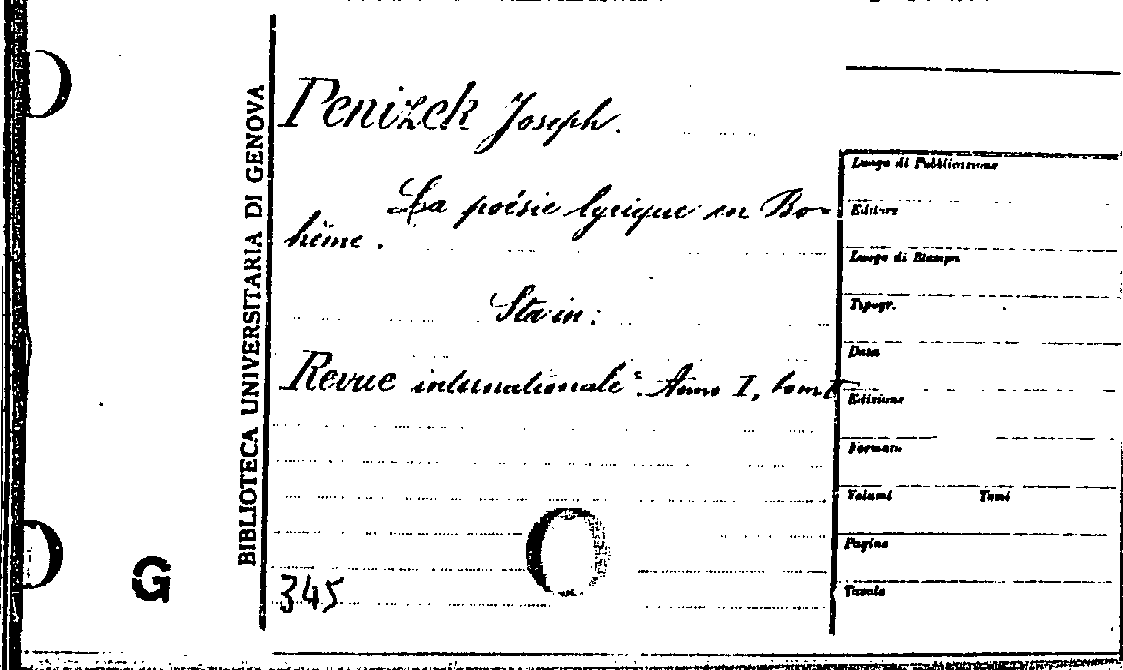 BIBLIOTECA UNIVERSITARIA DI GENOVA
Penizek Joseph.
La poésie lyrique en Bo-
hême.
Sta in:
Revue internationale: Anno I, tom
345
G
Luogo di Pubblicazione
Editore
Luogo di Stampa
Tipogr.
Data
Edizione
Formato
Volumi Tomi
Pagine
Tavole